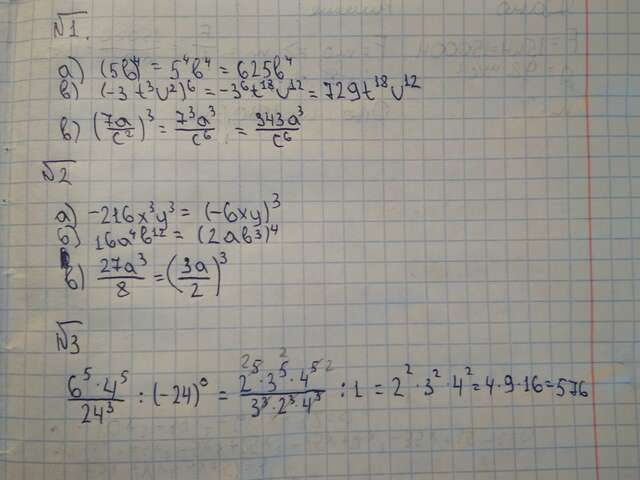 №1.
а) (5в)⁴ = 5⁴в⁴ = 625в⁴
в) (-3 t³υ²)⁶ = -3⁶t¹⁸υ¹² = 729t¹⁸υ¹²
в) (7a/c²)³ = 7³a³/c⁶ = 343a³/c⁶
№2
а) -216x³y³ = (-6xy)³
б) 16a⁴в¹² = (2aв³)⁴
в) 27a³/8 = (3a/2)³
№3
6⁵·4⁵/24³ : (-24)⁰ = 2⁵·3⁵·4⁵/3³·2³·4³ : 1 = 2²·3²·4² = 4·9·16 = 576